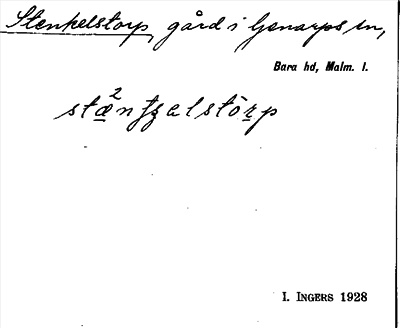 Stenkelstorp, gård i Genarps sn,
Bara hd, Malm. l.
I. INGERS 1928